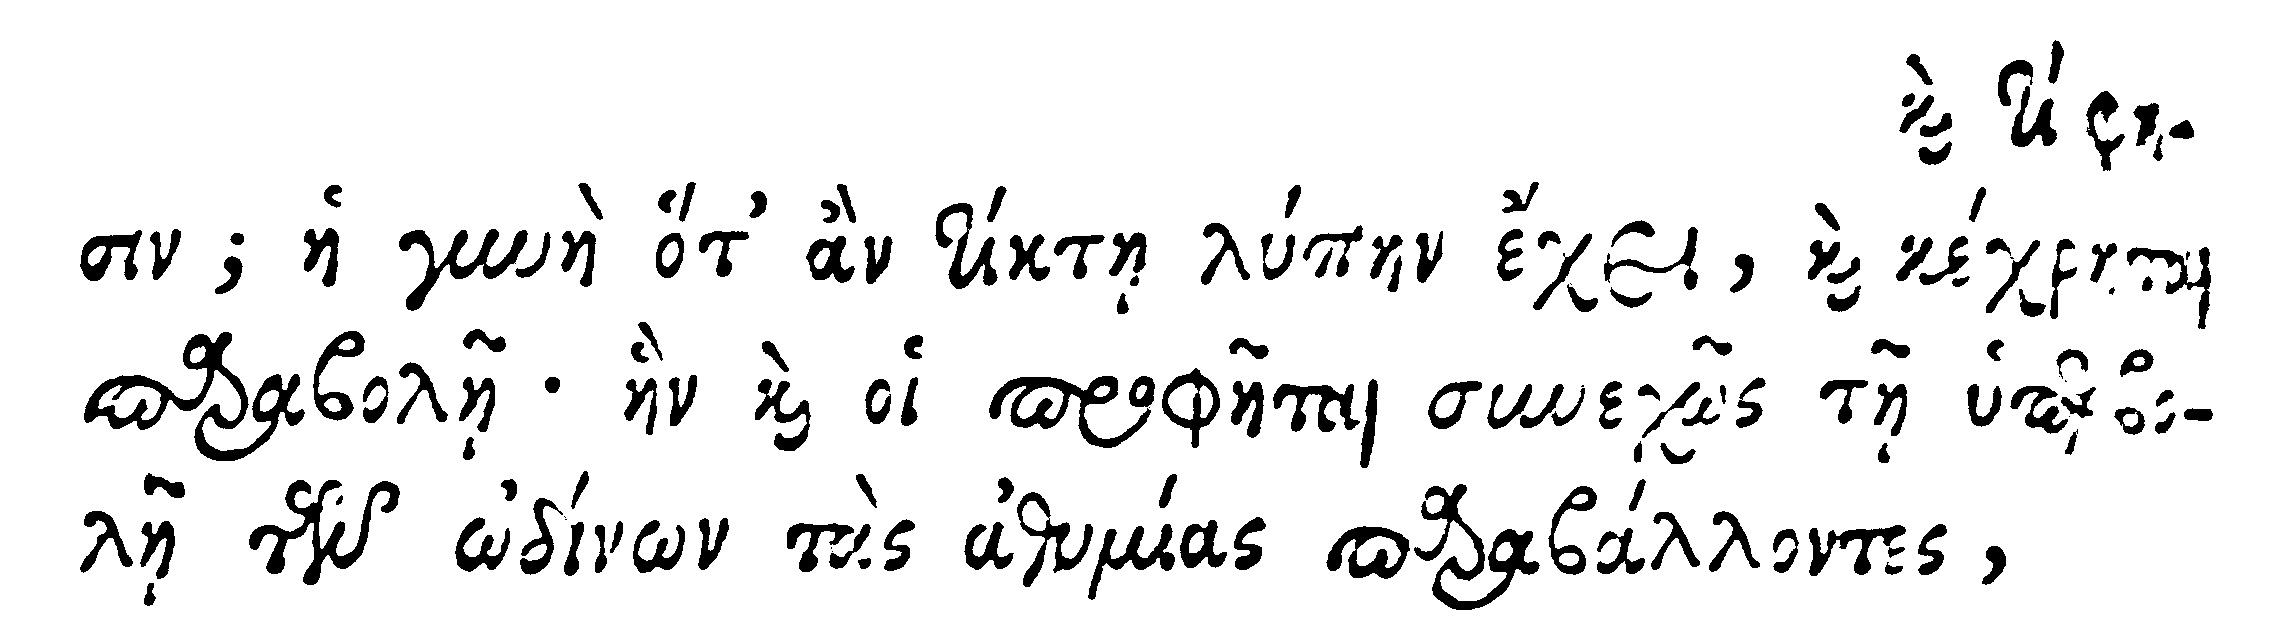 καὶ τί φη-
σιν; ἡ γυνὴ ὅτ’ ἂν τίκτῃ λύπην ἔχει, καὶ κέχρηται
παραβολῇ· ἣν καὶ οἱ προφῆται συνεχῶς τῇ ὑπερβο-
λῇ τῶν ὠδίνων τὰς ἀθυμίας παραβάλλοντες,